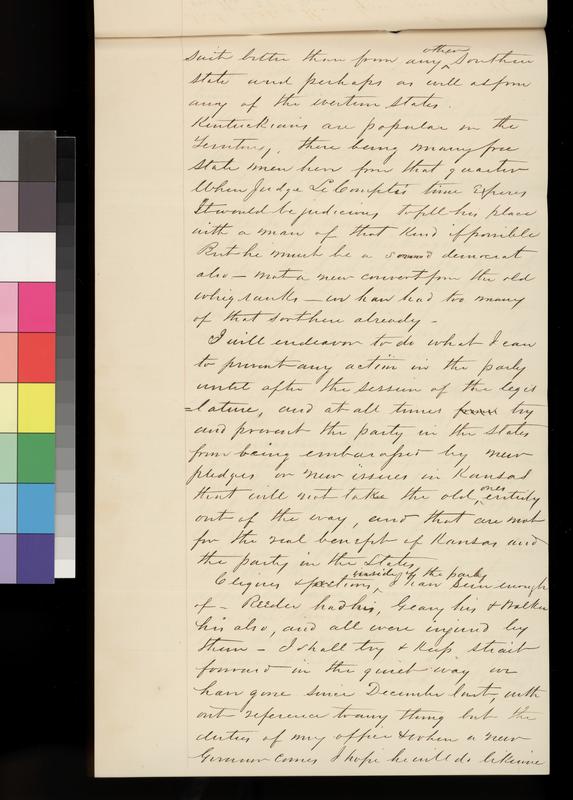 suit better than from any other Southern
state and perhaps as well as from
any of the western states.
Kentuckians are popular in the
Territory, there being many free
state men here from that quarter
When Judge LeCompte's time expires
It would be judicious to fill his place
with a man of that kind if possible
But he must be a sound democrat
also – not a new convert from the old
whig ranks – we have had too many
of that sort here already –
I will endeavor to do what I can
to prevent any action in the party
until after the session of the legis
=lature, and at all times try
and prevent the party in the States
from being embarassed by new
pledges or new issues in Kansas
that will not take the old ones, entirely
out of the way, and that are not
for the real benefit of Kansas and
the party in the States,
Cliques & factions, inside of the party I have seen enough
of – Reeder had his, Geary his & Walker
his also, and all were injured by
them – I shall try & keep strait
forward in the quiet way we
have gone since December last, with
out reference to any thing but the
duties of my office & when a new
Governor comes I hope he will do likewise